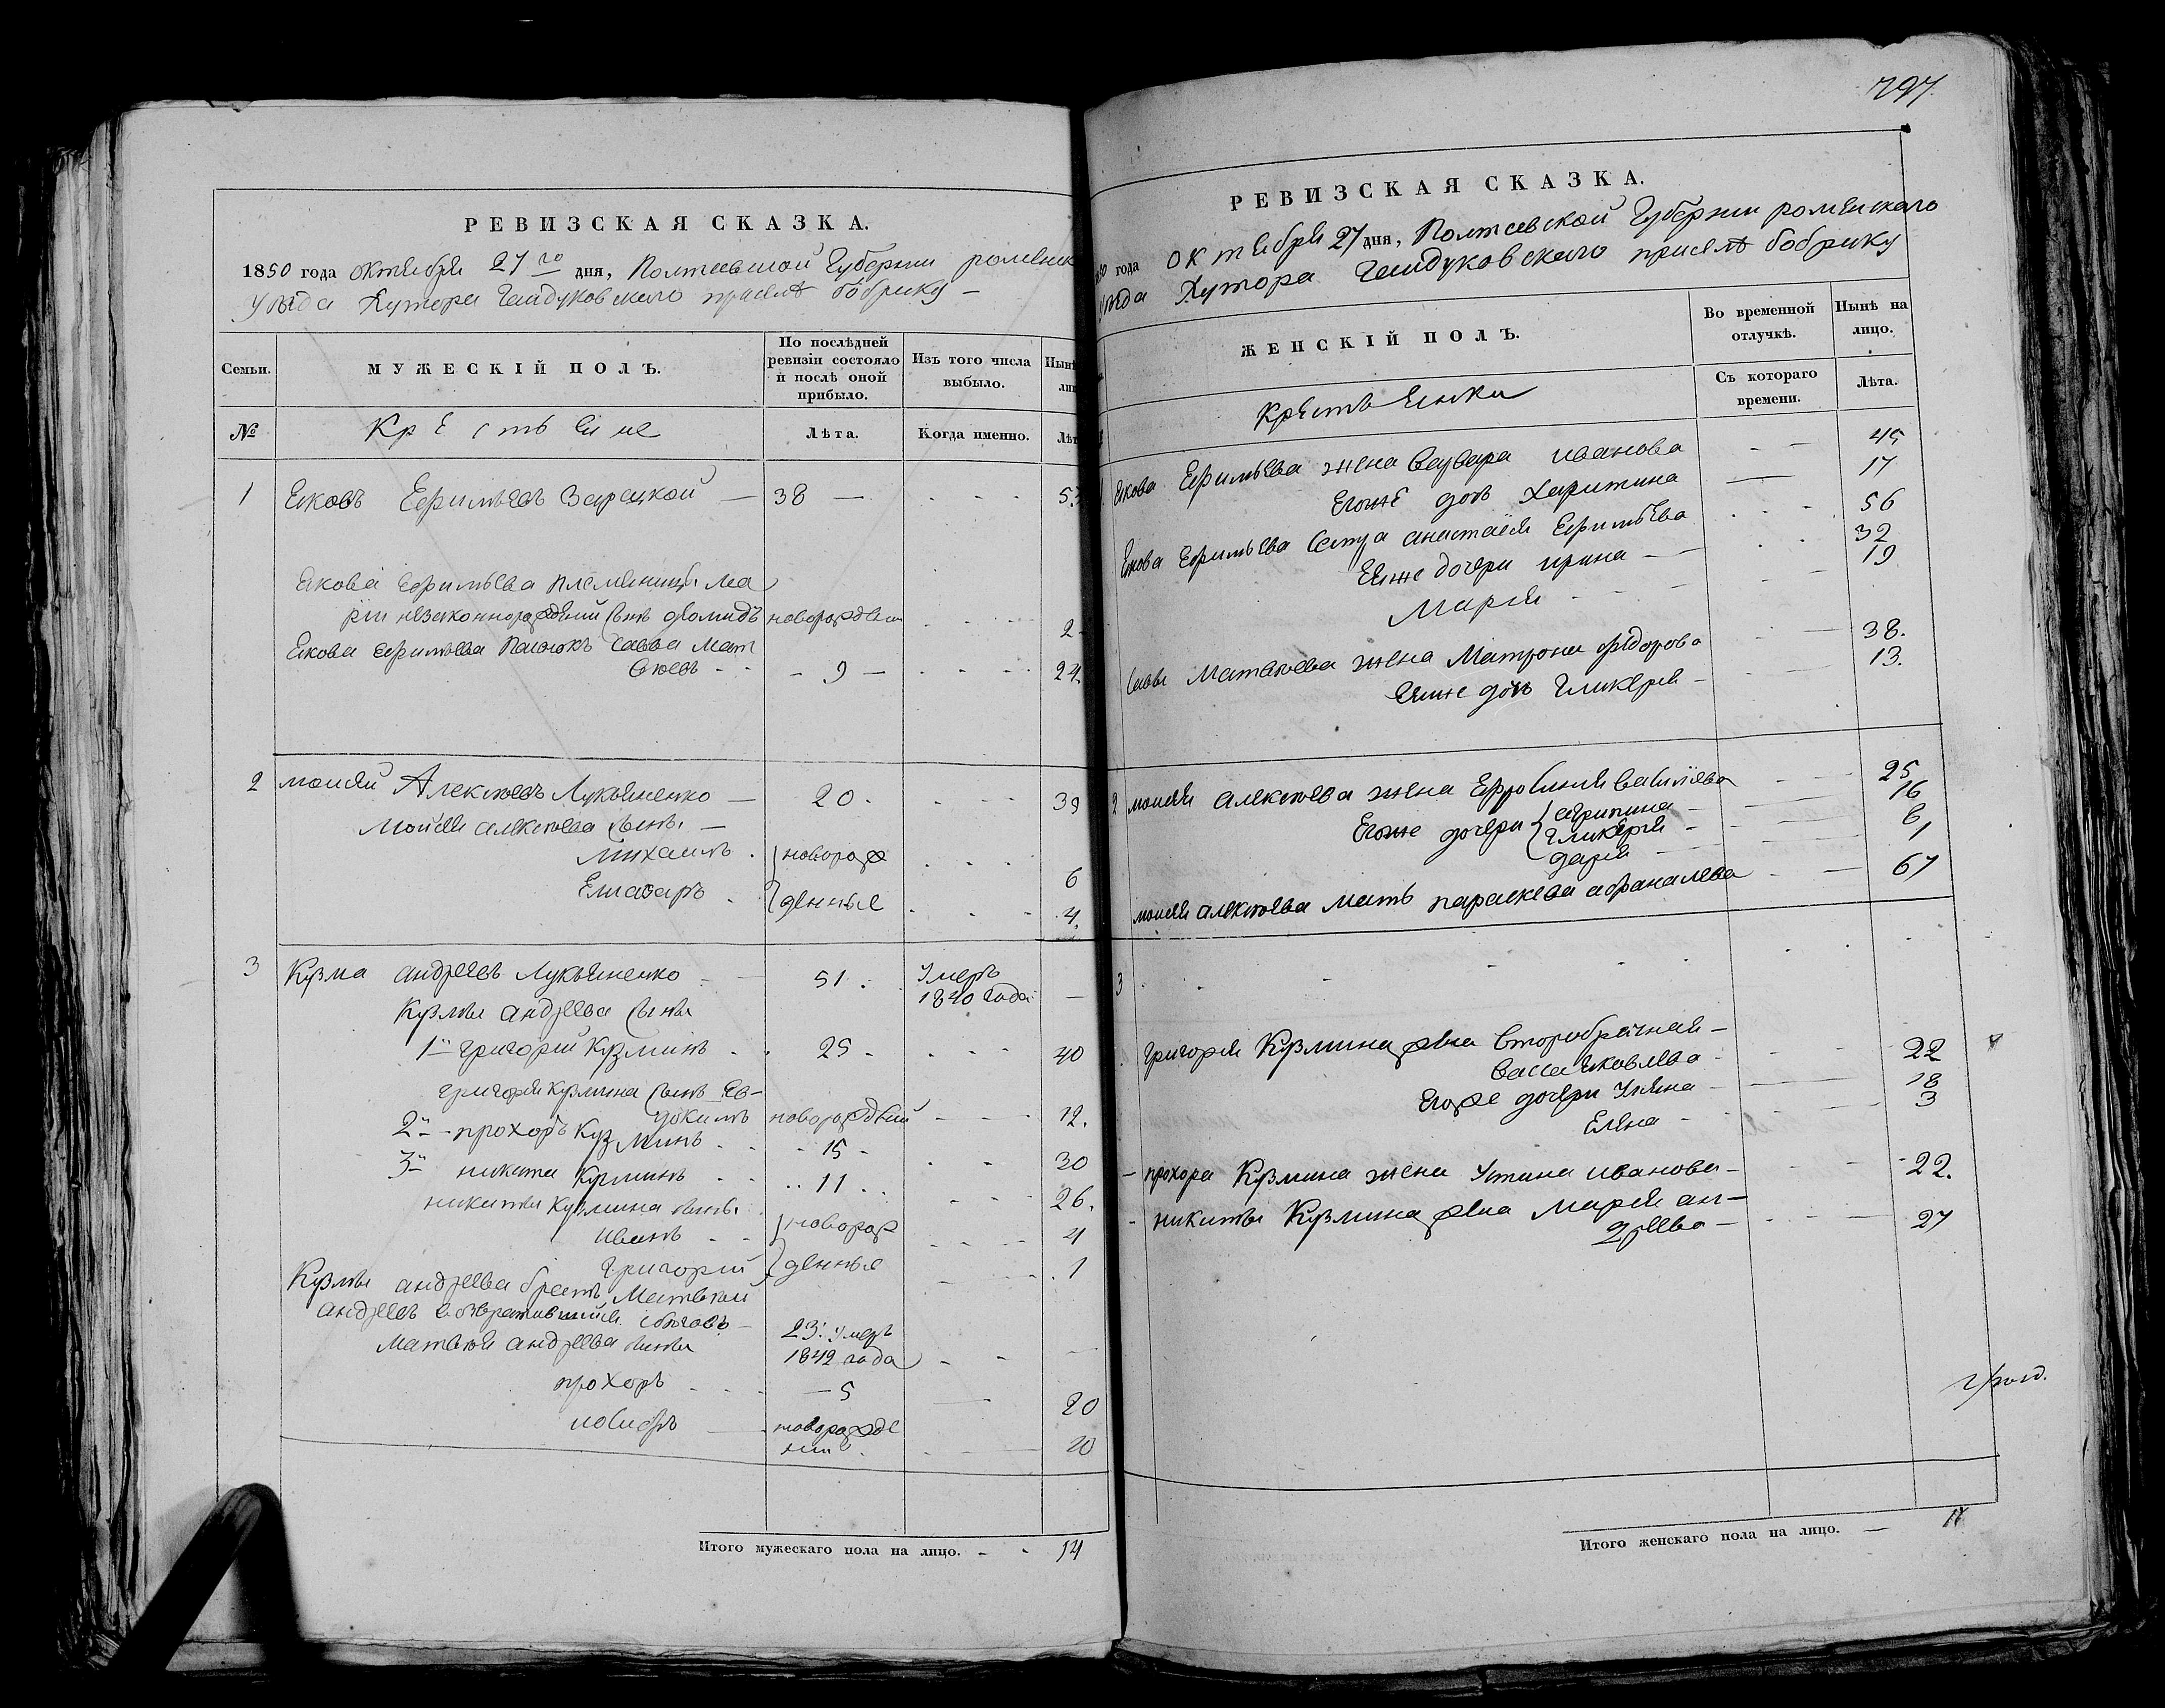 РЕВИЗСКАЯ СКАЗКА.
1850 года октября 27 го дня, Полтавской Губернии роменск
Уѣзда Хутора Гайдуковскаго при селѣ бобрику —
Семьи.
МУЖЕСКІЙ ПОЛЪ.
По послѣдней ревизіи состояло и послѣ оной прибыло.
Изъ того числа выбыло.
Нынѣ
№
Крестьяне
Лѣта.
Когда именно.
Лѣт
1 Яковъ Ефимьевъ Зарецкой — 38 — 53
Якова Ефимьева племяницы Ма
рии незаконнорождений сынъ диомидъ новорожден 2
Якова Ефимьева Пасюкъ Савва Мат
веевъ - - 9 — 24.
2 моисей Алексѣевъ Лукьяненко — 20 - 39
Моисея алексѣева сыны —
Михаилъ новорож 6
Елиазаръ денные 4.
3 Кузма андреевъ Лукьяненко 51 Умеръ
1840 года —
Кузмы андреева сыны
1й григорий Кузминъ 25 - 40
григория Кузмина сынъ Ев-
докимъ новорождений 12.
2й прохоръ Кузминъ 15 - 30
3й никита Кузминъ 11 26.
никиты Кузмина сыны
иванъ новорож 4
Григорий денные 1
Кузмы андреева братъ Матвѣй
андреевъ возвратившийся сбѣговъ
23. умеръ
Матвѣя андреева сыны
1842 года
прохоръ — 5 20
новорожде
ний 10
Итого мужескаго пола на лицо. - - 14
797
РЕВИЗСКАЯ СКАЗКА.
50 года октября 27 дня, Полтавской Губернии роменскаго
Уѣзда Хутора Гайдуковскаго при селѣ бобрику
ЖЕНСКІЙ ПОЛЪ.
Во временной отлучкѣ.
Нынѣ на лицо.
Крестьянки
Съ котораго времени.
Лѣта.
Якова Ефимьева жена Варвара иванова 45
Егоже дочь Харитина 17
Якова Ефимьева сестра анастасия Ефимьева 56
Еяже дочери ирина — 32
Мария 19
Саввы Матвѣева жена Матрона фёдорова 38.
Еяже дочь Гликерия - 13.
2 моисея алексѣева жена Ефросиния василиева 25
Егоже дочери агрипина - 16
Гликерия - 6
дария 1
моисея алексѣева мать параскева афанасиева 67
3
григория Кузмина жена второбрачная —
васса яковлева - 22
Егоже дочери Улияна - 18
Елена - 3
прохора Кузмина жена Устина иванова - 22.
никиты Кузмина жена Мария ан-
дреева — 27
Итого женскаго пола на лицо. —